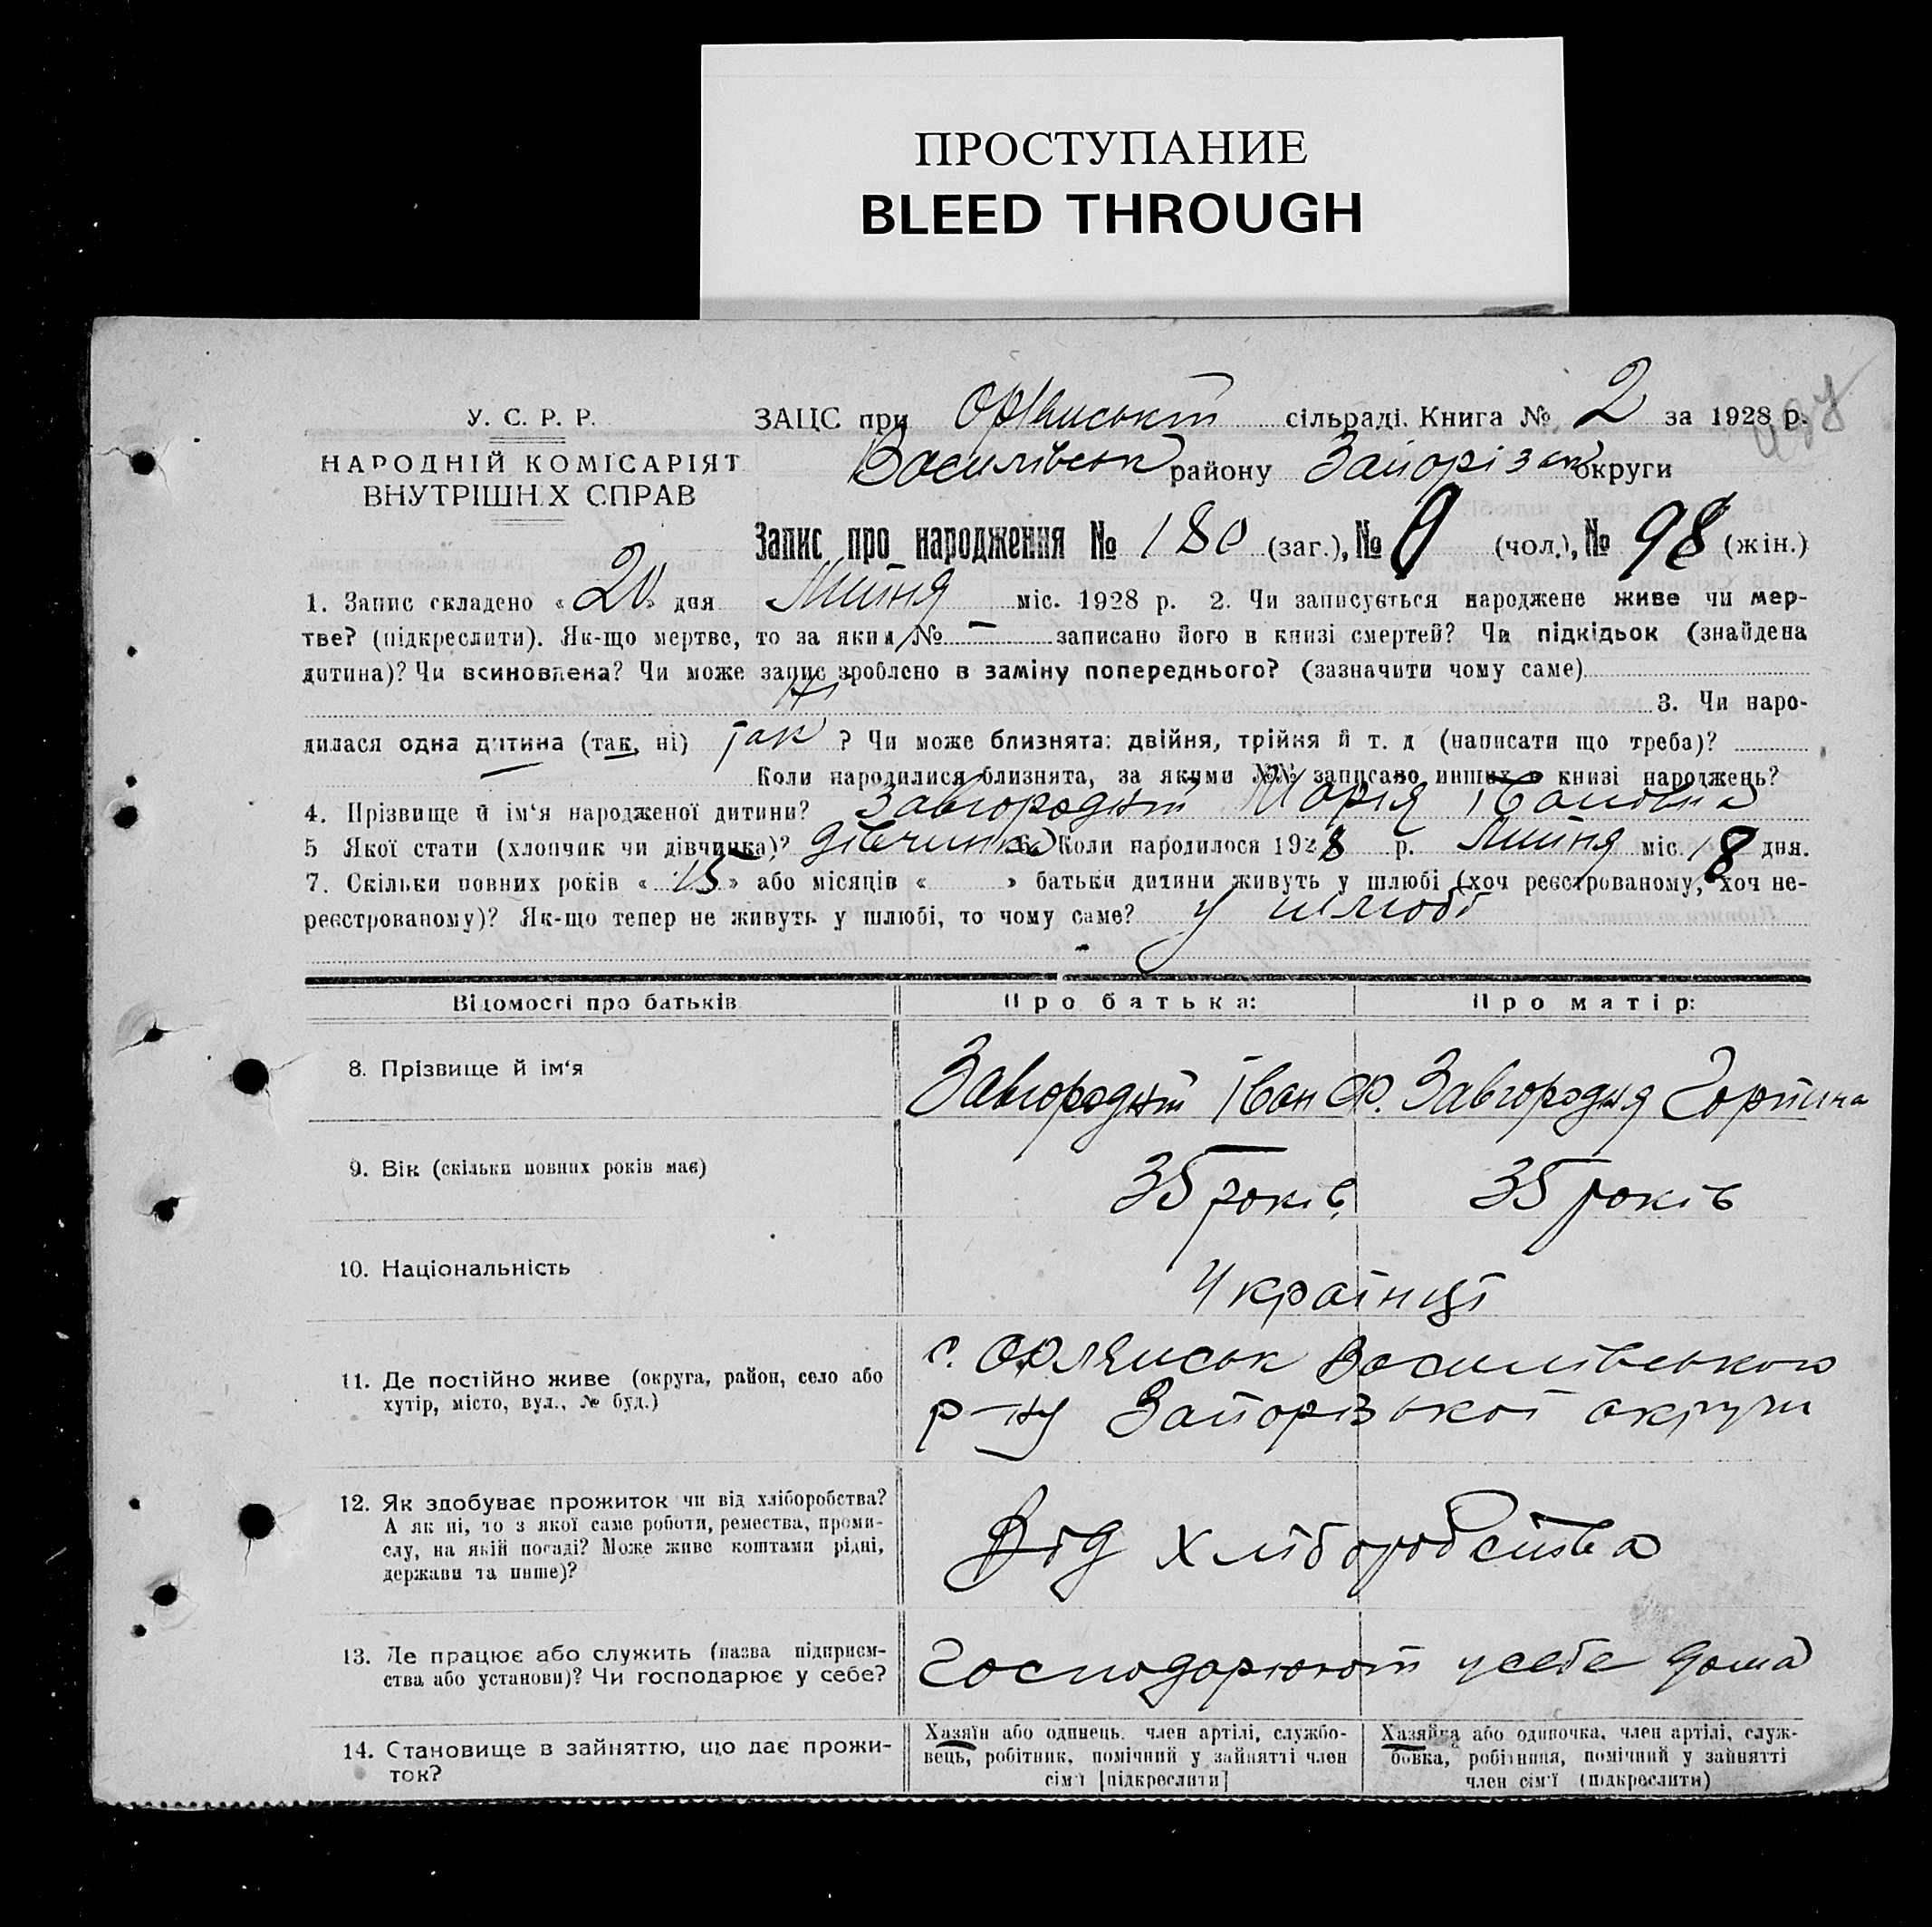 ПРОСТУПАНИЕ
BLEED THROUGH
У. С. Р. Р.
НАРОДНІЙ КОМІСАРІЯТ
ВНУТРІШНІХ СПРАВ
ЗАЦС при сільраді. Книга № 2 за 1928 р.
Василівськ району Запорізьк округи
Запис про народження № 180 (заг.), № 0 (чол.), № 98 (жін.)
1. Запис складено « 20 » дня Липня міс. 1928 р. 2. Чи записується народжене живе чи мер-
тве? (підкреслити). Як-що мертве, то за яким № — записано його в книзі смертей? Чи підкідьок (знайдена
дитина)? Чи всиновлена? Чи може запис зроблено в заміну попереднього? (зазначити чому саме)
ні 3. Чи наро-
дилася одна дитина (так, ні) так ? Чи може близнята: двійня, трійня й т. д (написати що треба)?
— Коли народилися близнята, за якими №№ записано инших в книзі народжень?
4. Прізвище й ім'я народженої дитини? Завгородній Марія Івановна
5 Якої стати (хлопчик чи дівчинка)? дівчинка 6. Коли народилося 1928 р. Липня міс. 18 дня.
7. Скільки повних років « 15 » або місяців « » батьки дитини живуть у шлюбі (хоч реєстрованому, хоч не-
реєстрованому)? Як-що тепер не живуть у шлюбі, то чому саме? у шлюбі
Відомості про батьків Про батька: Про матір:
8. Прізвище й ім'я Завгородній Іван Ф. Завгородня Горпина
9. Вік (скільки повних років має) 35 років 35 років
10. Національність Українці
11. Де постійно живе (округа, район, село або
хутір, місто, вул., № буд.)
с. Орлянськ Василівського
р-ну Запорізької округи
12. Як здобуває прожиток чи від хліборобства?
А як ні, то з якої саме роботи, ремества, проми-
слу, на якій посаді? Може живе коштами рідні,
держави та инше)?
Від хліборобства
13. Де працює або служить (назва підприєм-
ства або установи)? Чи господарює у себе?
Господарюють у себе дома
14. Становище в зайняттю, що дає прожи-
ток?
Хазяїн або одинець, член артілі, службо-
вець, робітник, помічний у зайнятті член
сім'ї [підкреслити]
Хазяйка або одиночка, член артілі, служ-
бовка, робітниця, помічний у зайнятті
член сім'ї (підкреслити)